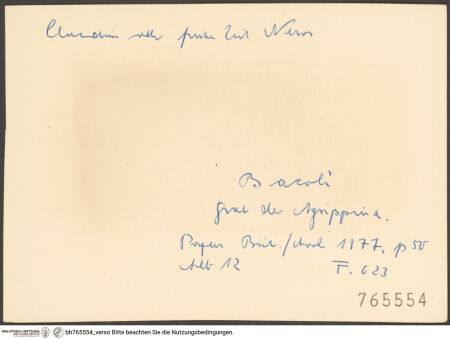 Claudius oder frühe Zeit Neros
Bacoli
Grab der Agrippina.
Papers Brit. School 1977, p 50
Abb 12 F. 623
765554
BIBLIOTHECA HERTZIANA
bh765554_verso Bitte beachten Sie die Nutzungsbedingungen.